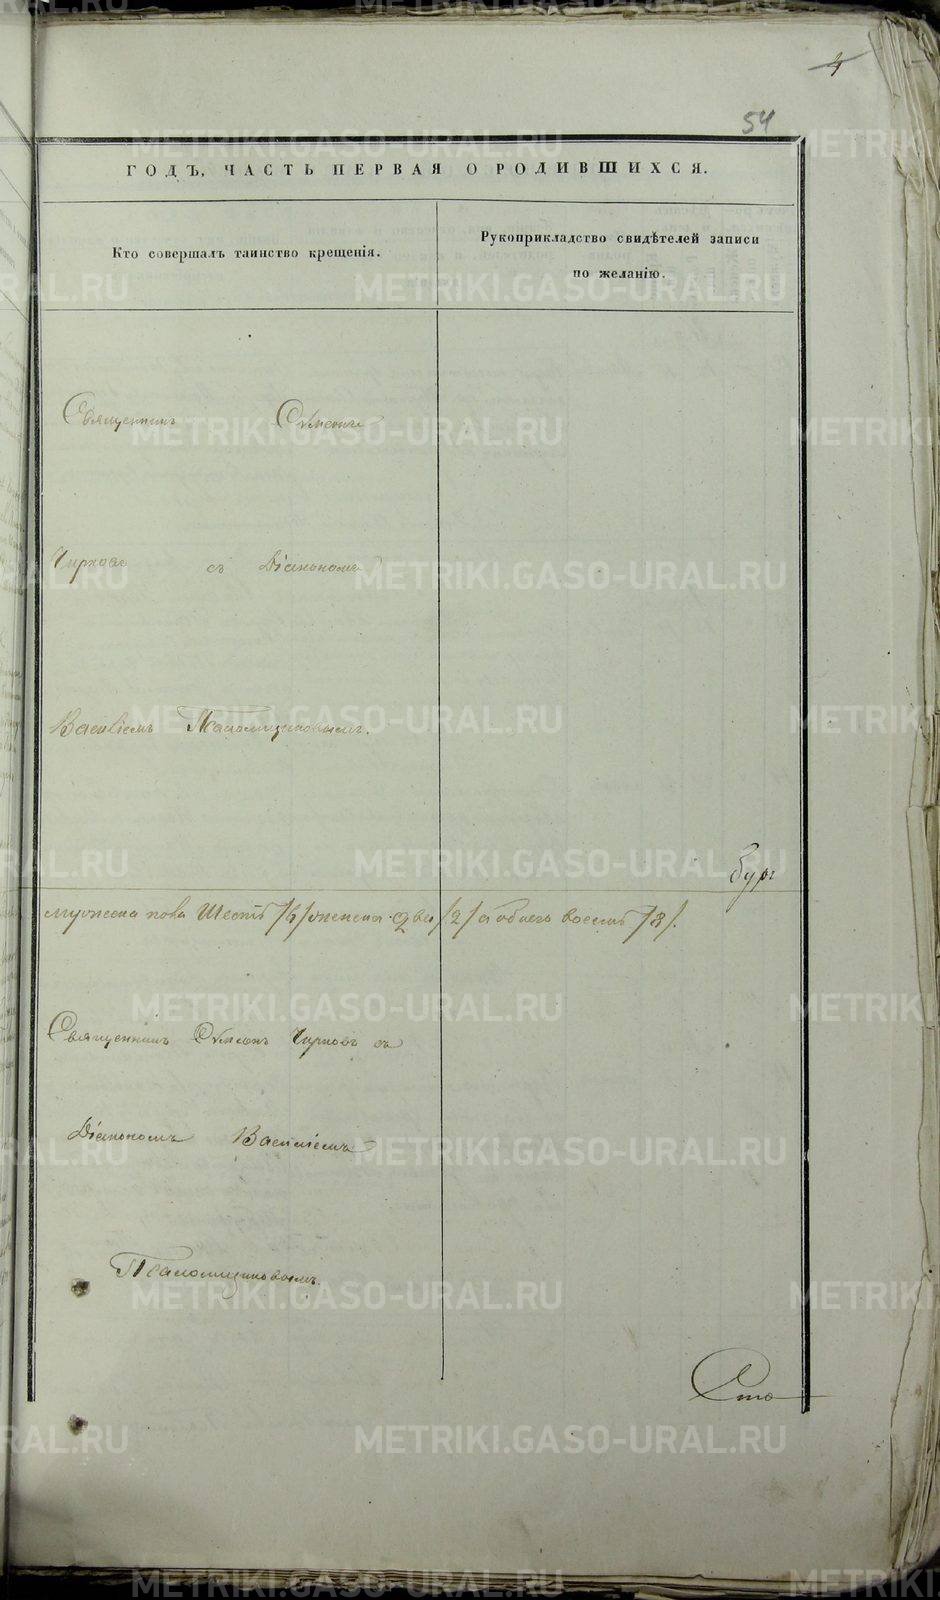 4
54
ГОДЪ, ЧАСТЬ ПЕРВАЯ О РОДИВШИХСЯ.
Кто совершалъ таинство крещенія.
Рукоприкладство свидѣтелей записи
по желанію.
Священникъ Сѵмеонъ
Чирковъ съ Діакономъ
Василіемъ Паломщиковымъ.
мужеска пола Шесть /6/ женска две /2/ а обоего восемь /8/.
Священникъ Сѵмеонъ Чирковъ съ
Діакономъ Василіемъ
Паломщиковымъ.
METRIKI.GASO-URAL.RU